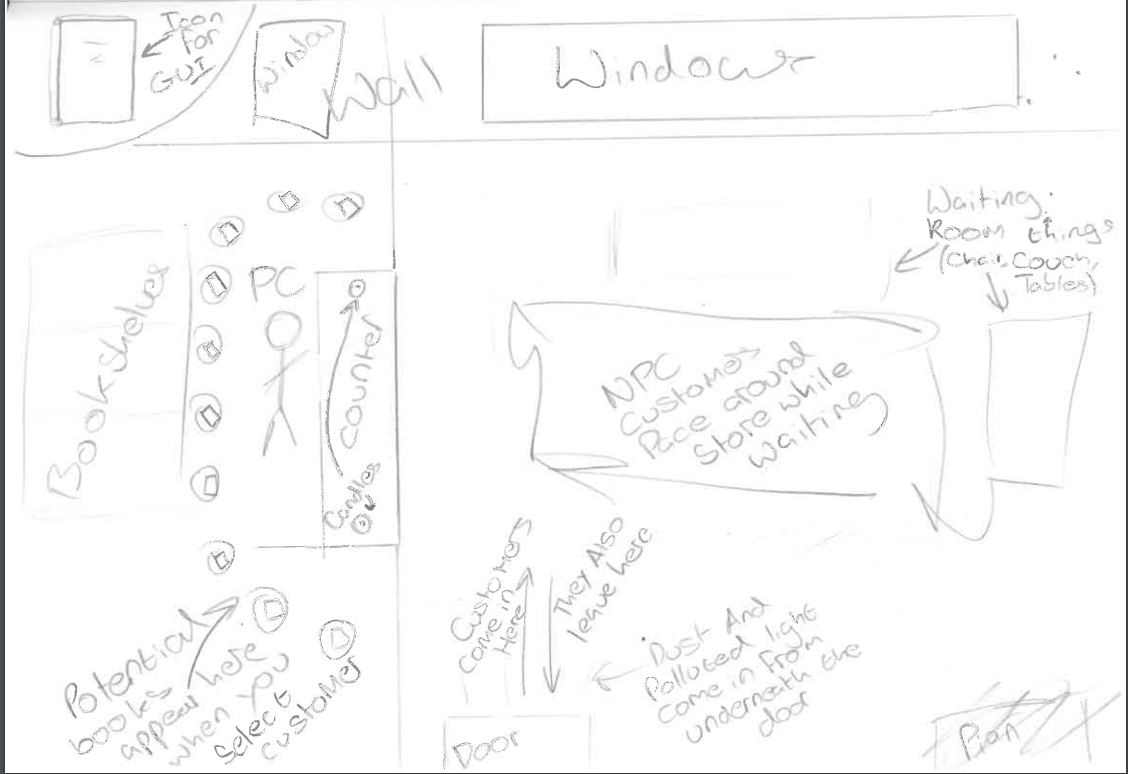 Icon
For
GUI
Window
Wall
Window
Waiting
Room things
(Chair, Couch,
Tables)
Bookshelves
PC
Counter
Candles
NPC
Customers
Pace around
Store while
waiting
Customers
come in
Here
They Also
leave here
Dust And
Polluted light
come in From
underneath the
door
Potential
books
appear here
when you
select
customer
Door